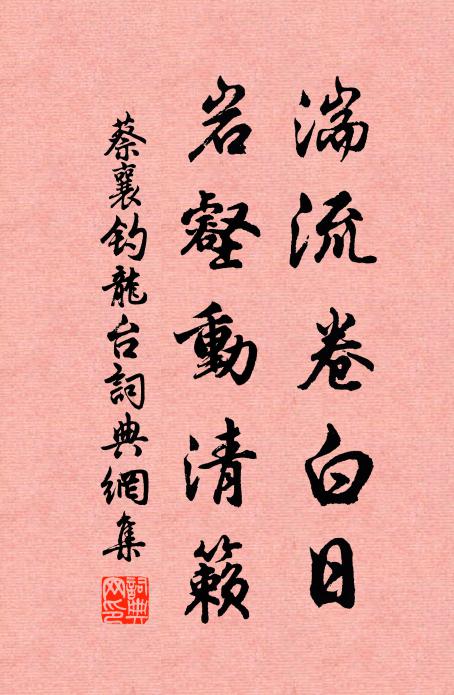 湍流卷白日
岩壑動清籟
蔡襄釣龍台詞典網集
詞典
网印